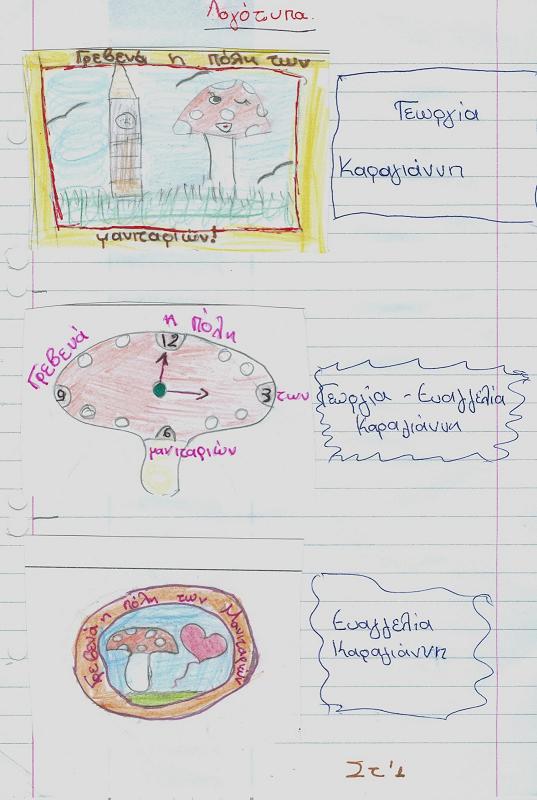 Λογότυπα.
Γρεβενά η πόλη των
μανιταριών!
Γεωργία
Καραγιάννη
Γρεβενά
η πόλη
12
9
3
των
6
μανιταριών
Γεωργία - Ευαγγελία
Καραγιάννη
Γρεβενά η πόλη των Μανιταριών
Ευαγγελία
Καραγιάννη
Στ'1